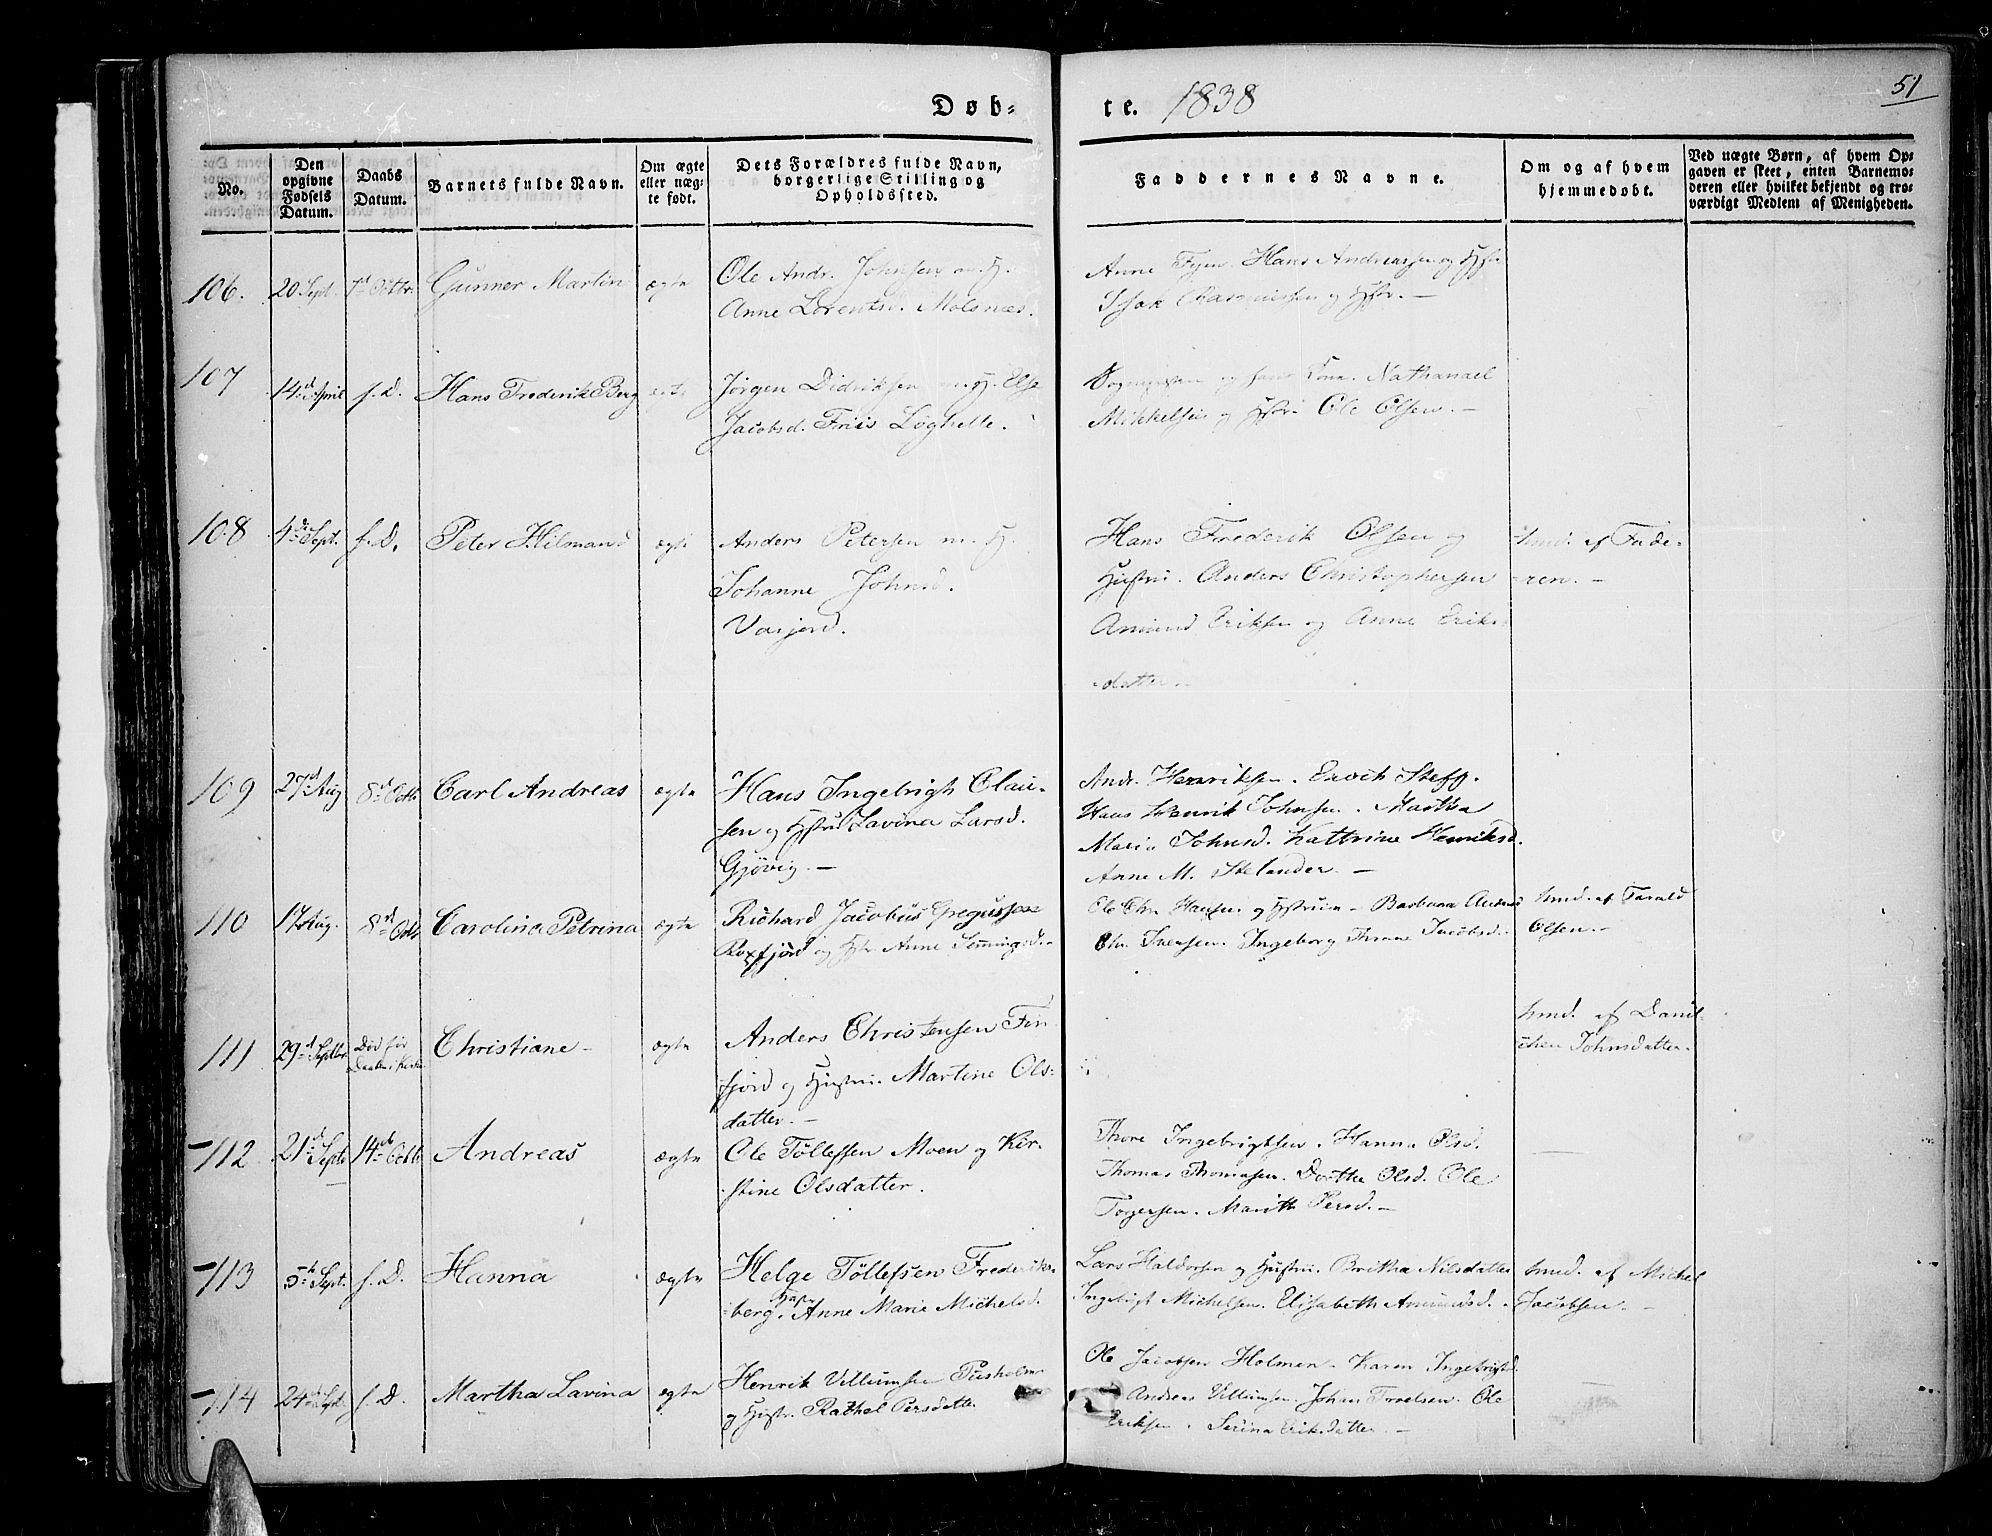 51
Døb-
te. 1838
No.
Den opgivne Fødsels Datum.
Daabs Datum.
Barnets fulde Navn.
Om ægte eller uægte født.
Dets Forældres fulde Navn, borgerlige Stilling og Opholdssted.
Faddernes Navne.
Om og af hvem hjemmedøbt.
Ved uægte Børn, af hvem Opgaven er skeet, enten Barnemoderen eller hvilket bekjendt og troværdigt Medlem af Menigheden.
106. 20 Sept. 7d Octbr. Gunner Martin ægte
Ole Andr. Johnsen m. H.
Anne Lorentsd. Molsnæs.
Anne Fyen. Hans Andreassen og Hstr
Isak Rasmussen og Hstr. —
107 14d April f. D. Hans Frederik Berg ægte
Jørgen Didriksen m. H. Else
Jacobsd. Friis Løghelle.
og hans Kone. Nathanael
Mikkelsen og Hstr. Ole Olsen. —
108 4de Sept. f. D. Peter Hilmand ægte
Anders Petersen m. H
Johanne Johnsd.
Vasjord.
Hans Frederik Olsen og
Hustru. Anders Christophersen
Amund Eriksen og Anne Eriks
datter. —
hmd. af Fade-
ren. —
109 27d Aug 8d Octb Carl Andreas ægte
Hans Ingebrigh Clau-
sen og Hstru Lavina Larsd.
Gjøvig. —
Andr. Henriksen. Enoch Steff.
Hans Henrik Johnsen. Martha
Maria Johnsd. Kathrine Henriksd.
Anne M. Stelander. —
110 17 Aug. 8d Octb Carolina Petrina ægte
Richard Jacobus Gregussen
Roxfjord og Hstr Anne Sørningsd. —
Ole Chr. Hansen og Hstruen — Barbara Andersd
Chr. Ivensen. Ingeborg Thrane Jacobsd.
hmd. af Farald
Olsen. —
111 29d Septbr Død før Daaben i Kirke Christiane — ægte
Anders Christensen Fin-
fjord og Hustru. Martine Ols-
datter. —
hmd. af Danil-
chen Johnsdatter.
112 21d Septb 14de Octb Andreas ægte
Ole Tøllefsen Moen og Kir-
stine Olsdatter.
Thore Ingebrigtsen. Hanna Olsd.
Thomas Thomasen. Dorthe Olsd. Ole
Torgersen. Marith Persd. —
—
113 5te Sept. f. D. Hanna ægte
Helge Tøllefsen Frederiks-
berg. Hstr Anne Marie Michelsd.
Lars Haldorsen og Hustru. Britha Nilsdatter
Ingebrigt Michelsen. Elisabeth Amundsd.
hmd. af Michel
Jacobsen. —
114 24d Sept. f. D. Martha Lavina ægte
Henrik Villumsen Pusholm
og Hustr. Rachel Persdatter
Ole Jacobsen Holmen. Karen Ingebrigtsd
Andreas Villumsen. Johan Troelsen. Ole
Eriksen. Serina Eriksdatter. —